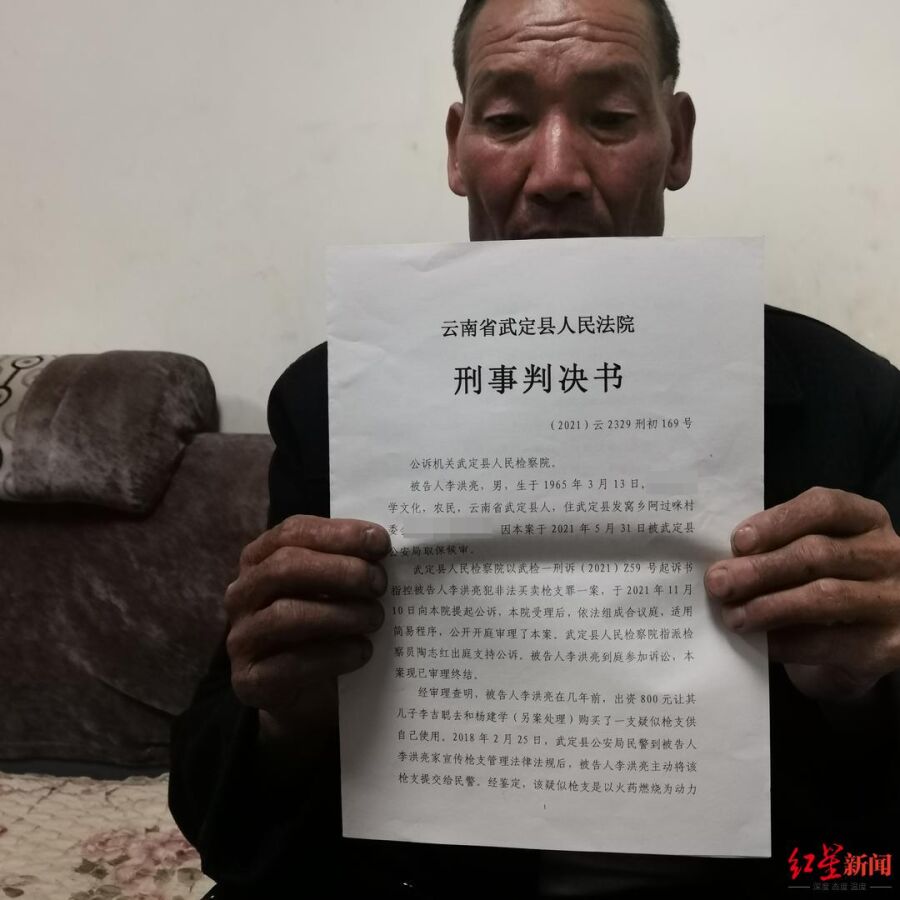 云南省武定县人民法院
刑事判决书
（2021）云2329刑初169号
公诉机关武定县人民检察院。
被告人李洪亮，男，生于1965年3月13日，
学文化，农民，云南省武定县人，住武定县发窝乡阿过咪村
委会 因本案于2021年5月31日被武定县
公安局取保候审。
武定县人民检察院以武检一刑诉（2021）Z59号起诉书
指控被告人李洪亮犯非法买卖枪支罪一案，于2021年11月
10日向本院提起公诉，本院受理后，依法组成合议庭，适用
简易程序，公开开庭审理了本案。武定县人民检察院指派检
察员陶志红出庭支持公诉。被告人李洪亮到庭参加诉讼，本
案现已审理终结。
经审理查明，被告人李洪亮在几年前，出资800元让其
儿子李吉聪去和杨建学（另案处理）购买了一支疑似枪支供
自己使用。2018年2月25日，武定县公安局民警到被告人
李洪亮家宣传枪支管理法律法规后，被告人李洪亮主动将该
枪支提交给民警。经鉴定，该疑似枪支是以火药燃烧为动力
1
红星新闻
深度 态度 温度